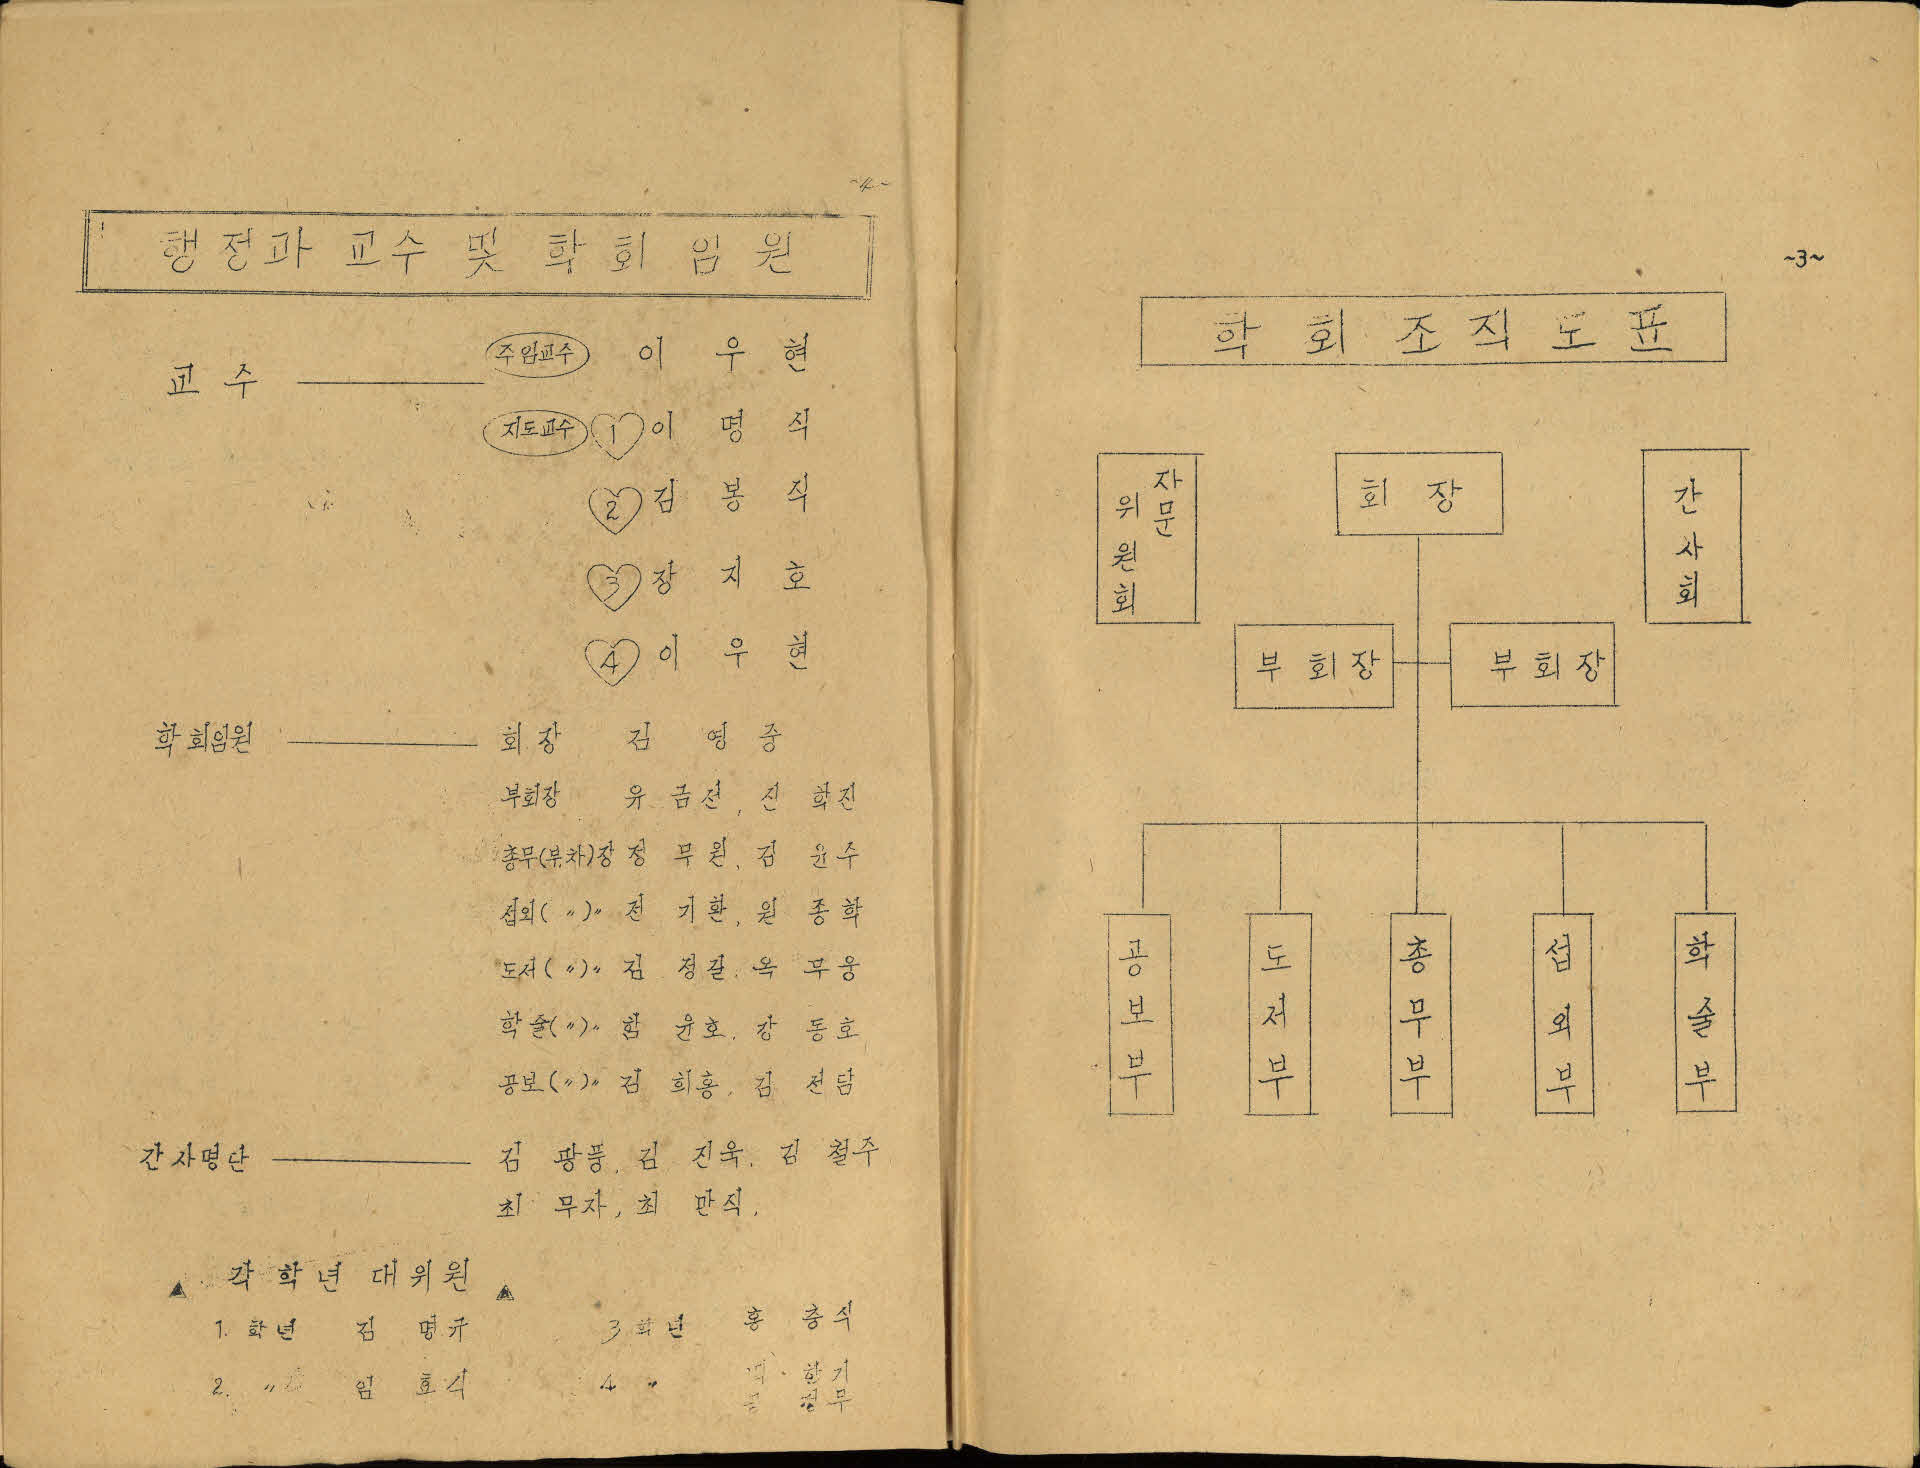 ~4~
행정과 교수 및 학회 임원
교수 주임교수 이우현
지도교수 1 이명식
2 김봉직
3 장지호
4 이우현
학회임원 회장 김영중
부회장 유금전, 진학진
총무(부,차)장 정무원, 김윤수
섭외( 〃 )〃 전기환, 원종학
도서( 〃 )〃 김정길, 옥무웅
학술( 〃 )〃 함윤호, 강동호
공보( 〃 )〃 김희홍, 김전담
간사명단 김광풍, 김진욱, 김철주
최무자, 최만직.
▲ 각 학년 대위원 ▲
1. 학년 김명규 3 학년 홍충식
2. 〃 임효식 4 〃 한기
무
~3~
학회조직도표
자문위원회 회장 간사회
부회장 부회장
공보부 도서부 총무부 섭외부 학술부